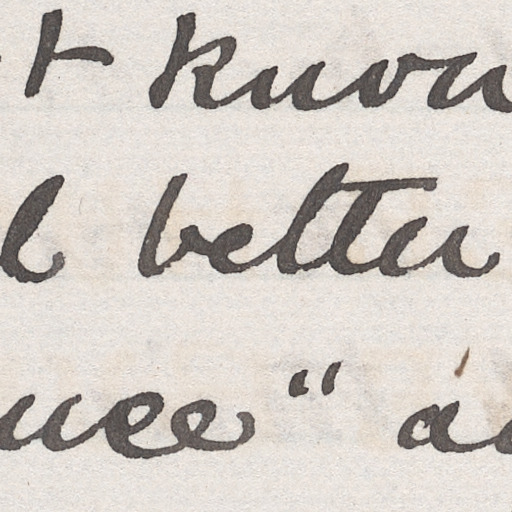 t know
l better
nce" a